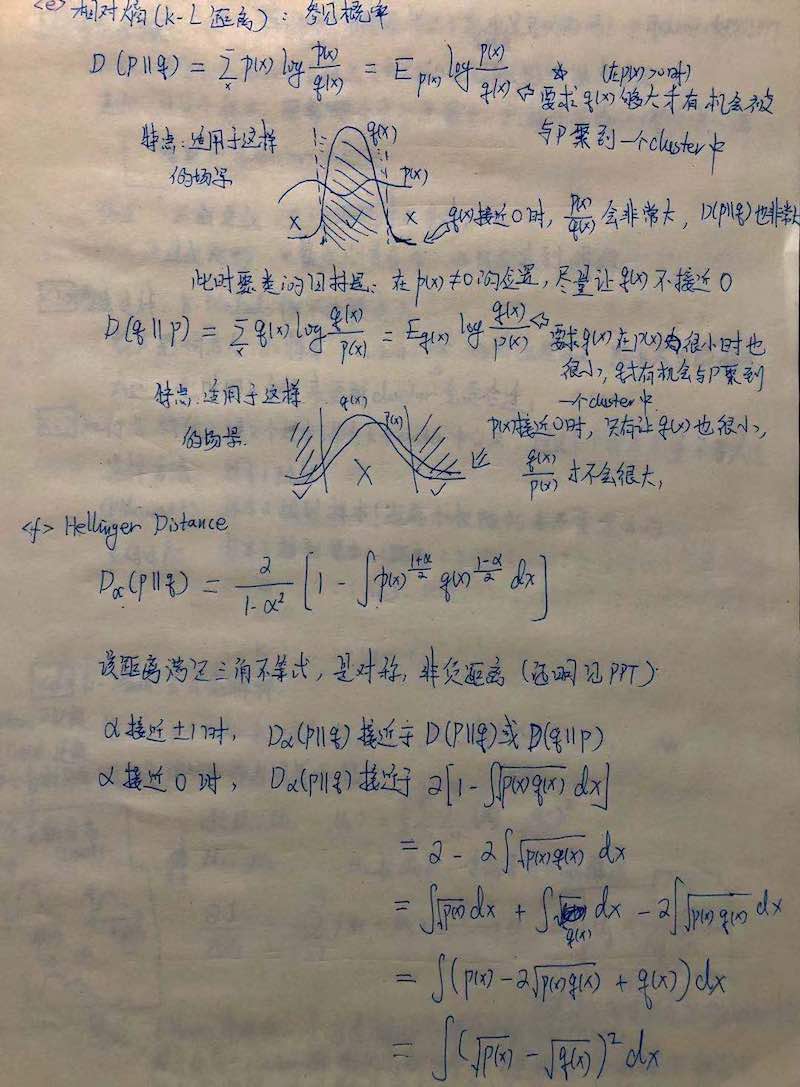 <e> 相对熵(K-L距离): 参见概率
D(p||q) = ∑_x p(x) log p(x)/q(x) = E_p(x) log p(x)/q(x) ⇐ 要求q(x)够大才有机会被
☆ (在p(x)>0时)
与P聚到一个cluster中
特点: 适用于这样
的场景
q(x)
p(x)
X ✓ X
q(x)接近0时, p(x)/q(x) 会非常大, D(p||q)也非常大
此时聚类的目标是: 在p(x)≠0的位置, 尽量让q(x)不接近0
D(q||p) = ∑_x q(x) log q(x)/p(x) = E_q(x) log q(x)/p(x) ⇐ 要求q(x)在p(x)很小时也
很小, q才有机会与P聚到
一个cluster中
特点: 适用于这样
的场景.
q(x)
p(x)
✓ X ✓
p(x)接近0时, 只有让q(x)也很小,
q(x)/p(x) 才不会很大,
<f> Hellinger Distance
Dα(p||q) = 2/(1-α²) [1 - ∫p(x)^((1+α)/2) q(x)^((1-α)/2) dx]
该距离满足三角不等式, 是对称, 非负距离 (证明见PPT).
α接近±1时, Dα(p||q)接近于D(p||q)或D(q||p)
α接近0时, Dα(p||q)接近于 2[1-∫√(p(x)q(x)) dx]
= 2 - 2∫√(p(x)q(x)) dx
= ∫√p(x) dx + ∫ q(x) dx - 2∫√(p(x)q(x)) dx
= ∫(p(x) - 2√(p(x)q(x)) + q(x)) dx
= ∫(√p(x) - √q(x))² dx